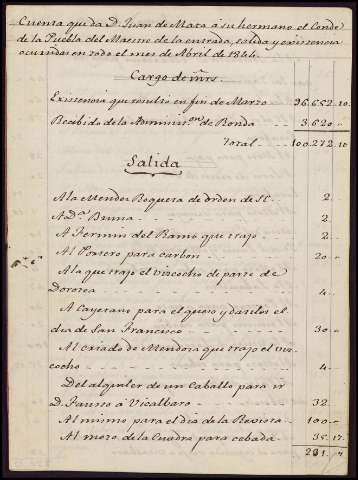 Cuenta que da D. Juan de Mata á su hermano el Conde
de la Puebla del Maestre de la entrada, salida y existencia
ocurridas en todo el mes de Abril de 1844.
Cargo de mrs.
Existencia que resultó en fin de Marzo 96.652.10.
Recibido de la Administ.on de Ronda 3.620
Total 100.272.10
Salida
A la Mendez Boquera de orden de S.E. 2
A D.a Bruna 2
A Fermin del Ramo que trajo 2
Al Portero para carbon 20
A la que trajo el viscocho de parte de
Dorotea 4
A Cayetano para el queso y darilos el
dia de San Francisco 30
Al criado de Mendoza que trajo el vis
cocho 4
Del alquiler de un Caballo para ir
D. Fausto á Vicalbaro 32
Al mismo para el dia de la Revista 100
Al mozo de la Cuadra para cebada 35.17.
231.